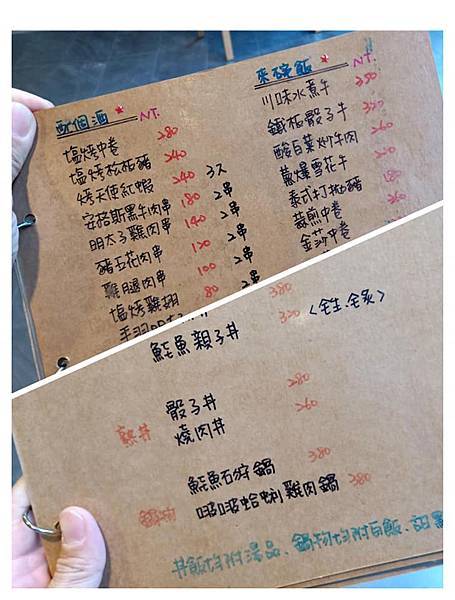 配個酒 NT.
塩烤中卷 280
塩烤松板豬 240
烤天使紅蝦 240 3入
安格斯黑牛肉串 180 2串
明太子雞肉串 140 2串
豬五花肉串 120 2串
雞腿肉串 100 2串
塩烤雞翅 80 2串
來碗飯 NT.
川味水煮牛 350
鐵板骰子牛 320
酸白菜炒牛肉 260
蔥爆雪花牛
泰式打拋豬
蒜煎中卷
金莎中卷
380
鮭魚親子丼 320 <全生.全炙>
熟丼
骰子丼 280
燒肉丼 260
鍋物
鮭魚石狩鍋 380
啵啵蛤蜊雞肉鍋 380
丼飯均附湯品、鍋物均附白飯、甜